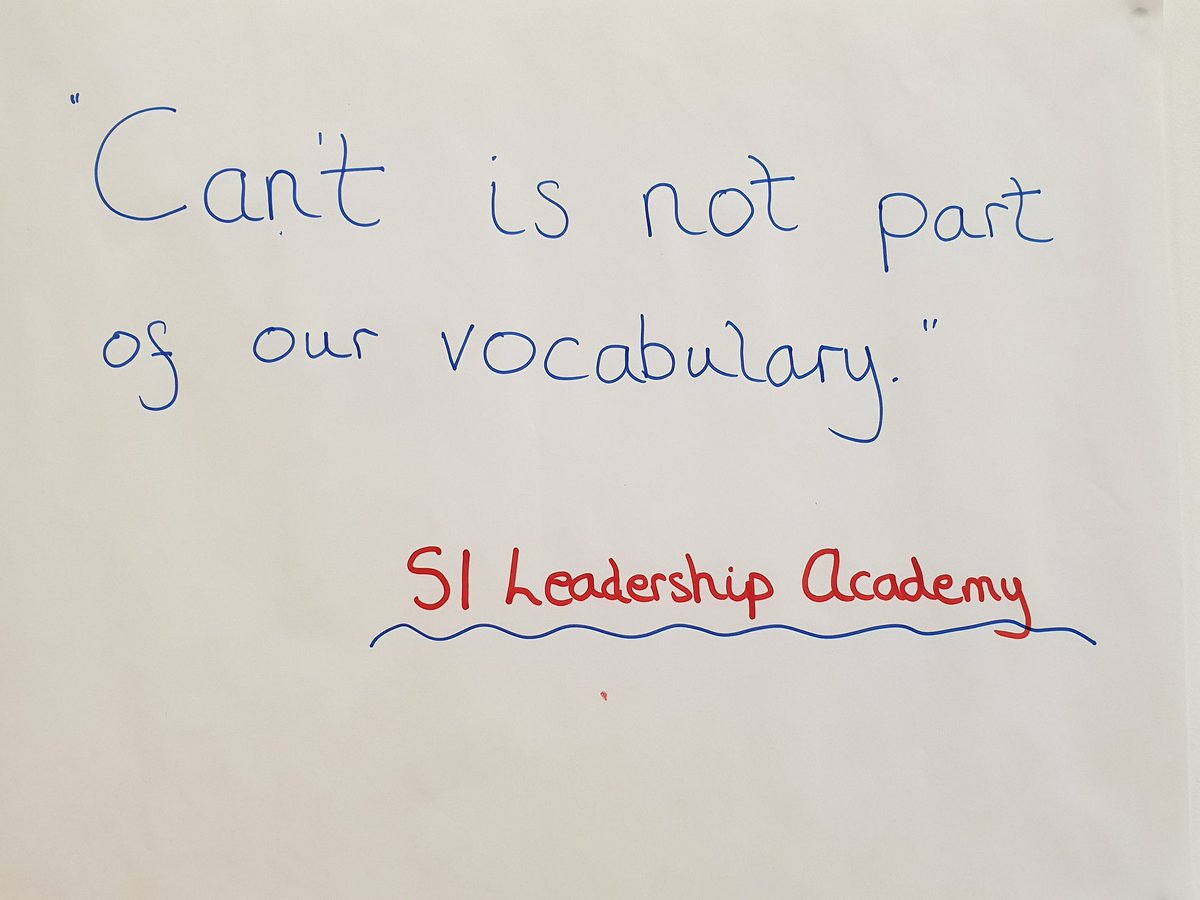 "Can't is not part
of our vocabulary."
SI Leadership Academy